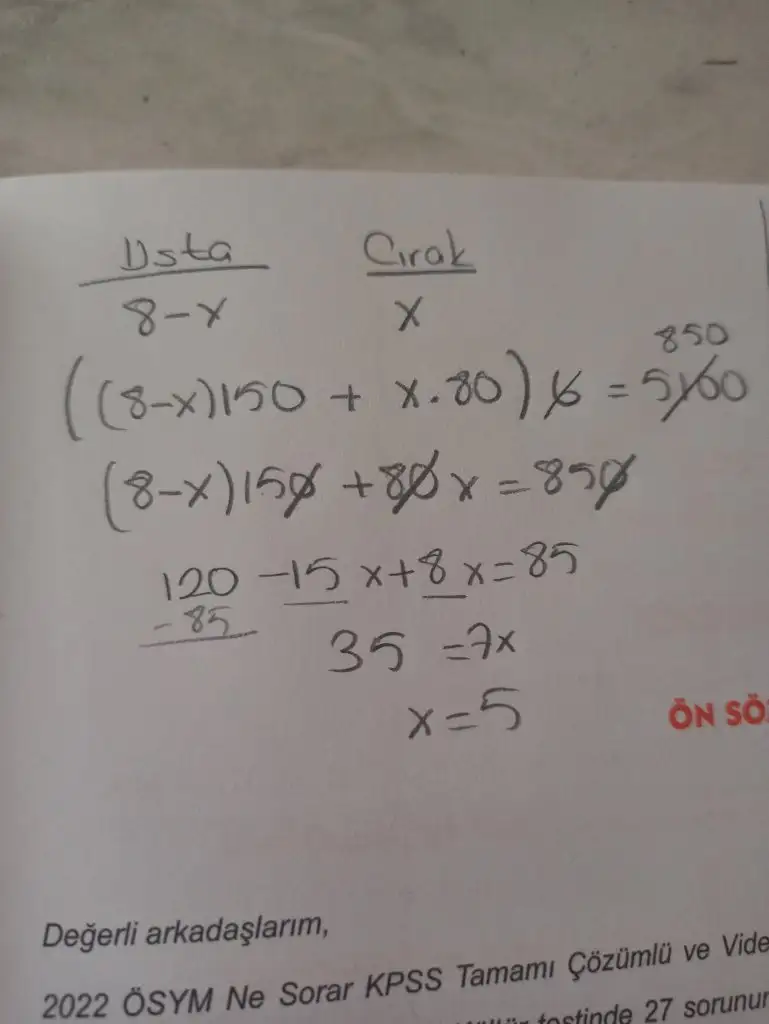 Usta Cırak
8-x x
850
((8-x)150 + x.80) 6 = 5100
(8-x)150 + 80x = 850
120 -15x+8x=85
-85
35 =7x
x=5
ÖN SÖ
Değerli arkadaşlarım,
2022 ÖSYM Ne Sorar KPSS Tamamı Çözümlü ve Vide
testinde 27 sorunun